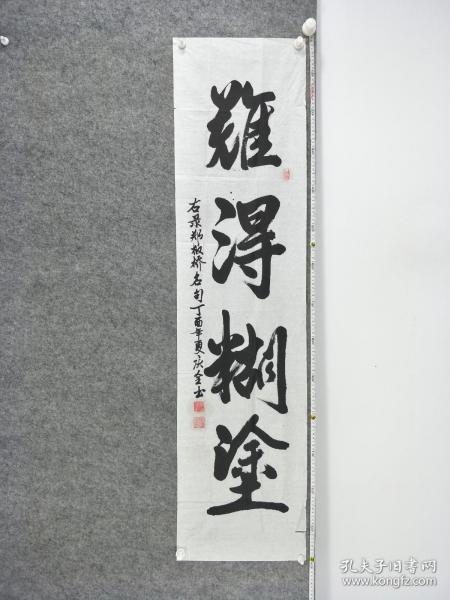 難得糊塗
右录郑板桥名句丁酉年夏庆全书
孔夫子旧书网
www.kongfz.com